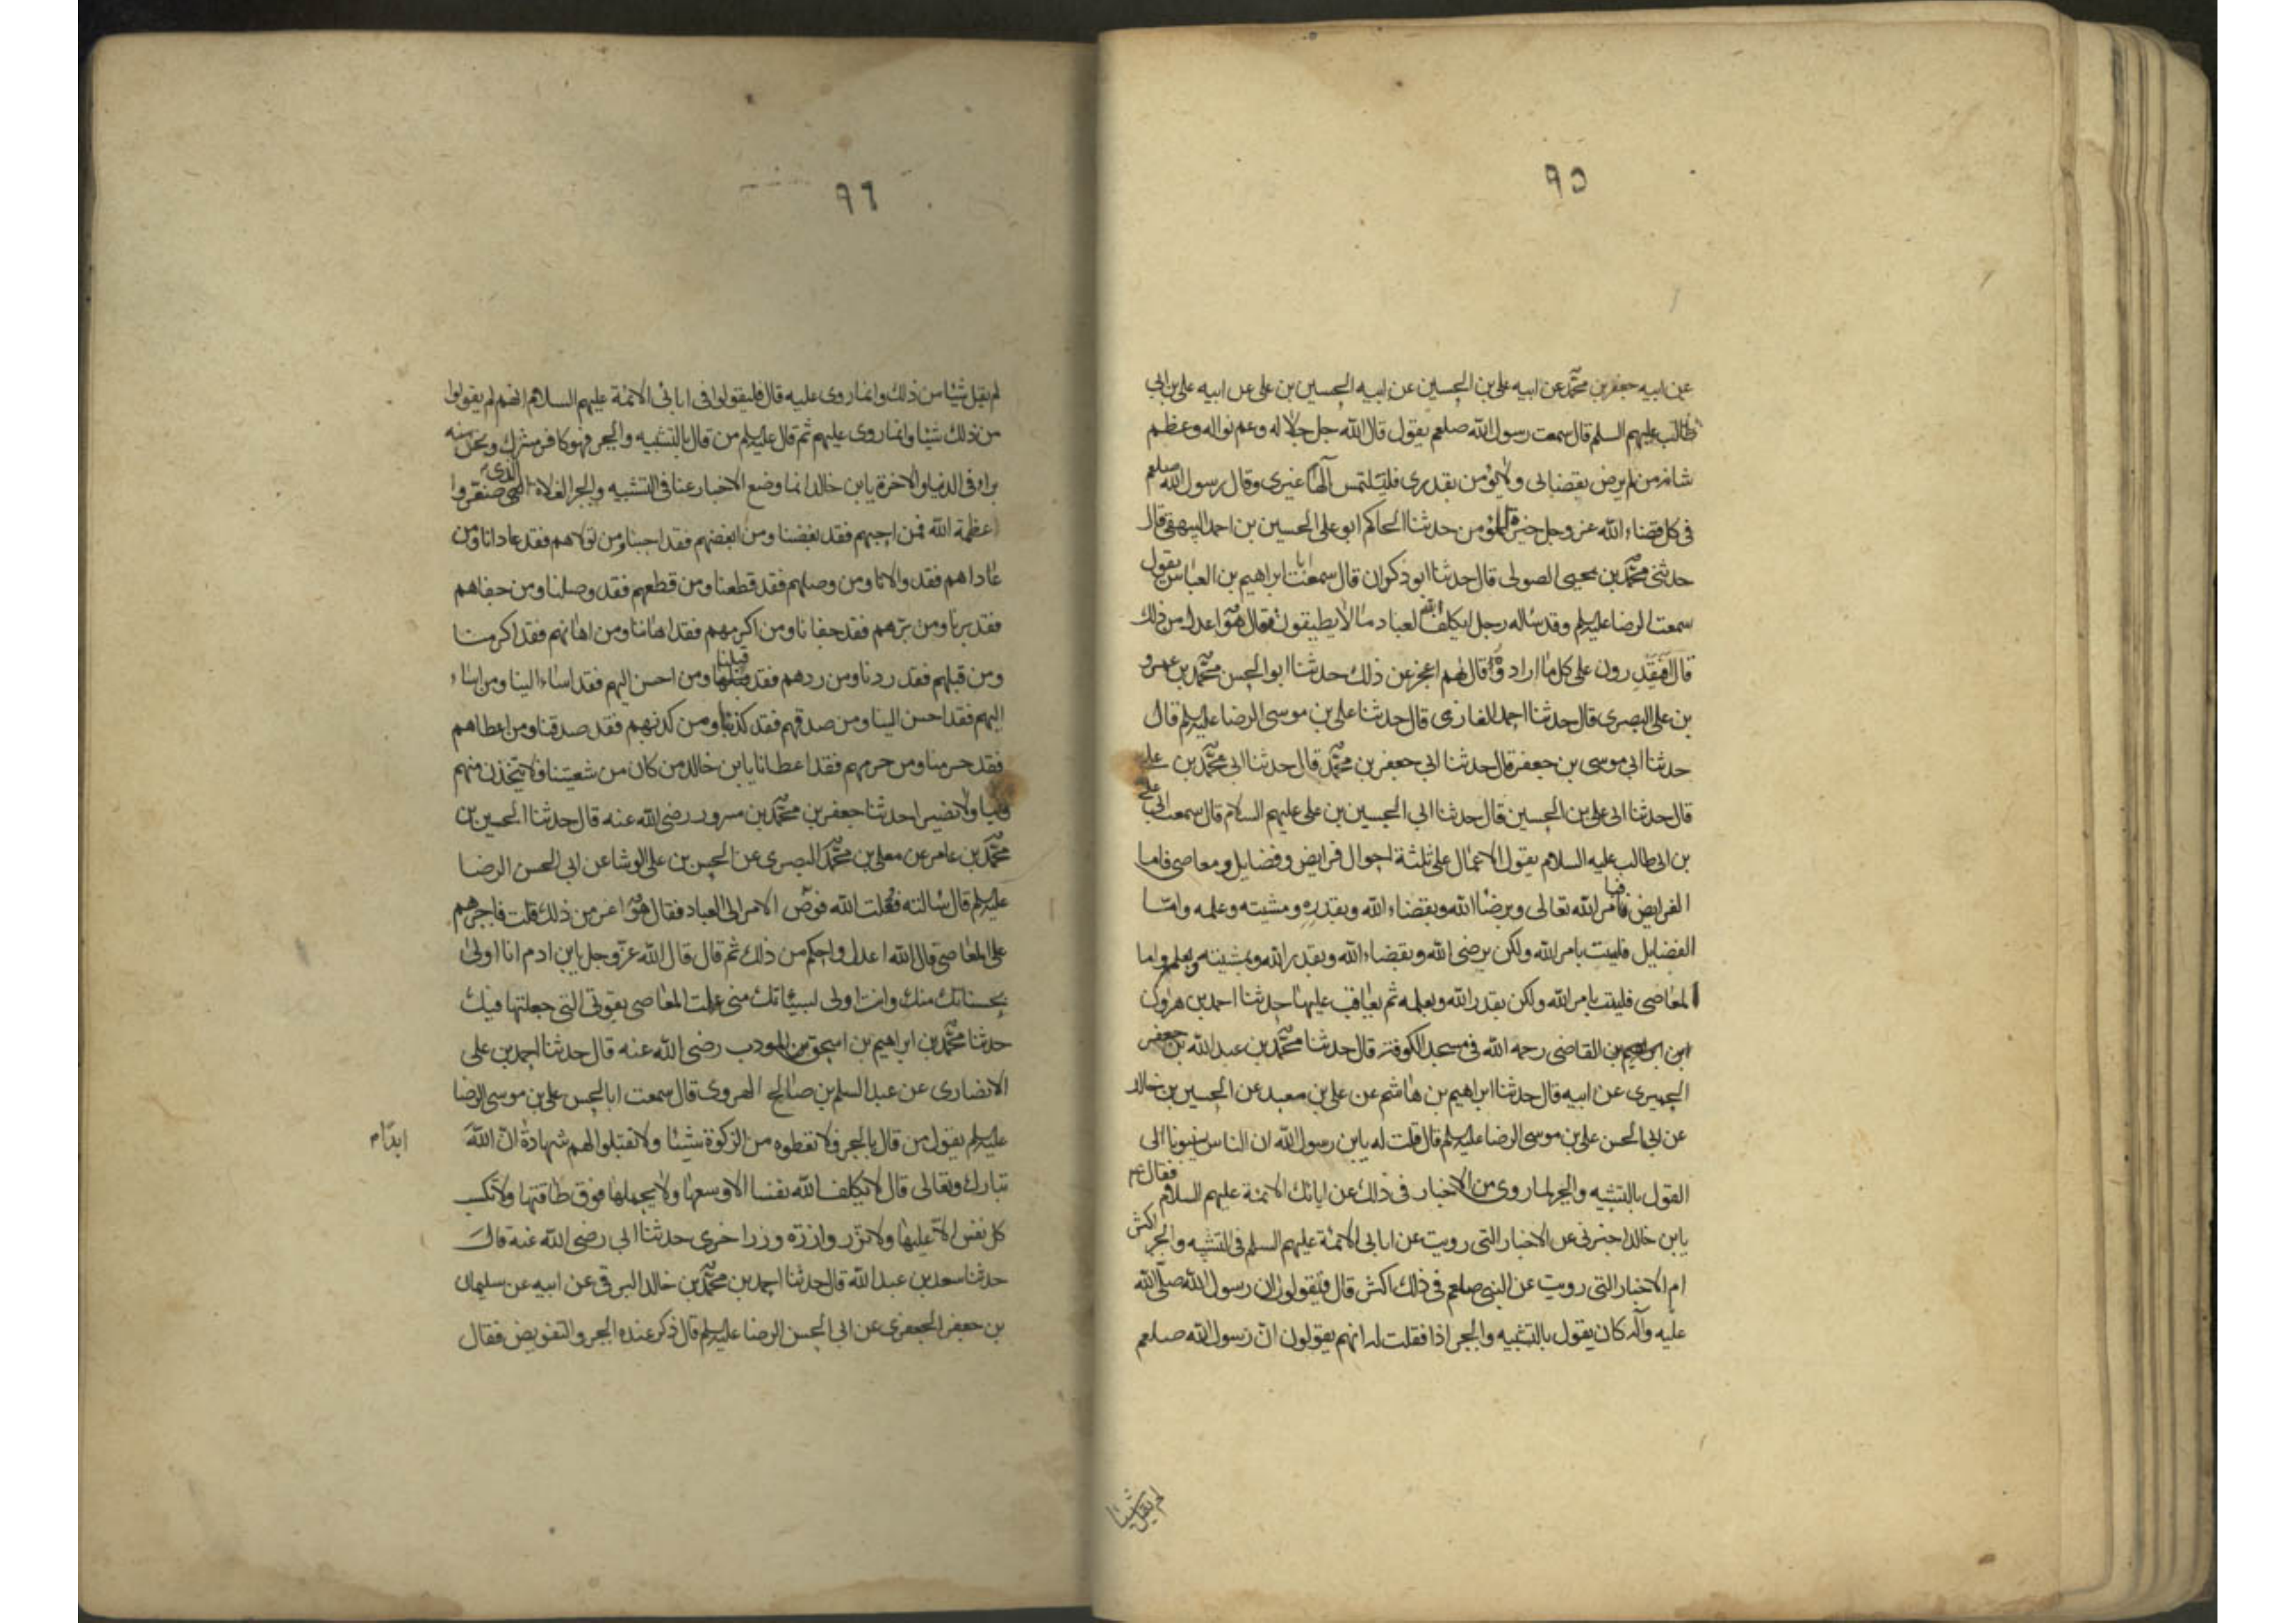 ٩٥
عن ابيه جعفر بن محمد عن ابيه علي بن الحسين عن ابيه الحسين بن علي عن ابيه علي بن ابي
طالب عليهم السلم قال سمعت رسول الله صلعم يقول قال الله جل جلاله وعم نواله وعظم
شانه من لم يرض بقضائى ولا يؤمن بقدرى فليلتمس آلها غيرى وقال رسول الله صلعم
فى كل قضاء الله عز وجل خيرة للمؤمن حدثنا الحاكم ابو على الحسين بن احمد البيهقى قال
حدثنى محمد بن يحيى الصولى قال حدثنا ابو ذكوان قال سمعت ابراهيم بن العباس يقول
سمعت الرضا عليه السلم وقد ساله رجل ايكلف الله العباد ما لا يطيقون فقال هو اعدل من ذلك
قال افيقدرون على كل ما اراد وه قال هم اعجز عن ذلك حدثنا ابو الحسن محمد بن عمرو
بن على البصرى قال حدثنا احمد الغازى قال حدثنا على بن موسى الرضا عليه السلم قال
حدثنا ابى موسى بن جعفر قال حدثنا ابى جعفر بن محمد قال حدثنا ابى محمد بن على
قال حدثنا ابى على بن الحسين قال حدثنا ابى الحسين بن على عليهم السلام قال سمعت ابى على
بن ابى طالب عليه السلام يقول الاعمال على ثلثة احوال فرايض وفضايل ومعاصى فاما
الفرايض فبامر الله تعالى وبرضا الله وبقضاء الله وبقدره ومشيته وعلمه واما
الفضايل فليست بامر الله ولكن برضى الله وبقضاء الله وبقدر الله وبمشيته وبعلمه واما
المعاصى فليست بامر الله ولكن بقدر الله وبعلمه ثم يعاقب عليها حدثنا احمد بن هرون
القاضى رحمه الله فى مسجد الكوفة قال حدثنا محمد بن عبد الله بن جعفر
الحميرى عن ابيه قال حدثنا ابراهيم بن هاشم عن على بن معبد عن الحسين بن خالد
عن ابى الحسن على بن موسى الرضا عليه السلم قال قلت له يابن رسول الله ان الناس ينسبونا الى
القول بالتشبيه والجبر لما روى من الاخبار فى ذلك عن ابائك الائمة عليهم السلام فقال
يابن خالد اخبرنى عن الاخبار التى رويت عن ابائى الائمة عليهم السلم فى التشبيه والجبر اكثر
ام الاخبار التى رويت عن النبى صلعم فى ذلك اكثر قال فليقولوا ان رسول الله صلى الله
عليه وآله كان يقول بالتشبيه والجبر اذا فقلت له انهم يقولون ان رسول الله صلعم
لم يقل شيئا
٩٦
لم يقل شيئا من ذلك وانما روى عليه قال فليقولوا فى ابائى الائمة عليهم السلام انهم لم يقولوا
من ذلك شيئا وانما روى عليهم ثم قال عليه السلم من قال بالتشبيه والجبر فهو كافر مشرك ونحن منه
براء فى الدنيا والاخرة يابن خالد انما وضع الاخبار عنا فى التشبيه والجبر الغلاة الذى صغروا
عظمة الله فمن احبهم فقد بغضنا ومن ابغضهم فقد احبنا ومن تولاهم فقد عادانا ومن
عاداهم فقد والانا ومن وصلهم فقد قطعنا ومن قطعهم فقد وصلنا ومن جفاهم
فقد برنا ومن برهم فقد جفانا ومن اكرمهم فقد اهاننا ومن اهانهم فقد اكرمنا
ومن قبلهم فقد ردنا ومن ردهم فقد قبلنا ومن احسن اليهم فقد اساء الينا ومن اساء
اليهم فقد احسن الينا ومن صدقهم فقد كذبنا ومن كذبهم فقد صدقنا ومن اعطاهم
فقد حرمنا ومن حرمهم فقد اعطانا يابن خالد من كان من شعيتنا فلا يتخذن منهم
وليا ولا نصيرا حدثنا جعفر بن محمد بن مسرور رضى الله عنه قال حدثنا الحسين بن
محمد بن عامر عن معلى بن محمد البصرى عن الحسن بن على الوشا عن ابى الحسن الرضا
عليه السلم قال سالته فقلت الله فوض الامر الى العباد فقال هو اعز من ذلك قلت فاجبرهم
على المعاصى قال الله اعدل واحكم من ذلك ثم قال قال الله عز وجل يابن ادم انا اولى
بحسناتك منك وانت اولى لسيئاتك منى عملت المعاصى بقوتى التى جعلتها فيك
حدثنا محمد بن ابراهيم بن اسحق المودب رضى الله عنه قال حدثنا احمد بن على
الانصارى عن عبد السلم بن صالح الهروى قال سمعت ابا الحسن على بن موسى الرضا
عليه السلم يقول من قال بالجبر فلا تعطوه من الزكوة شيئا ولا تقبلوا لهم شهادة ان الله
ابدا
تبارك وتعالى قال لا يكلف الله نفسا الا وسعها ولا يحملها فوق طاقتها ولا تكسب
كل نفس الا عليها ولا تزر وازرة وزر اخرى حدثنا ابى رضى الله عنه قال
حدثنا سعد بن عبد الله قال حدثنا احمد بن محمد بن خالد البرقى عن ابيه عن سليمان
بن جعفر الجعفرى عن ابى الحسن الرضا عليه السلم قال ذكر عنده الجبر والتفويض فقال